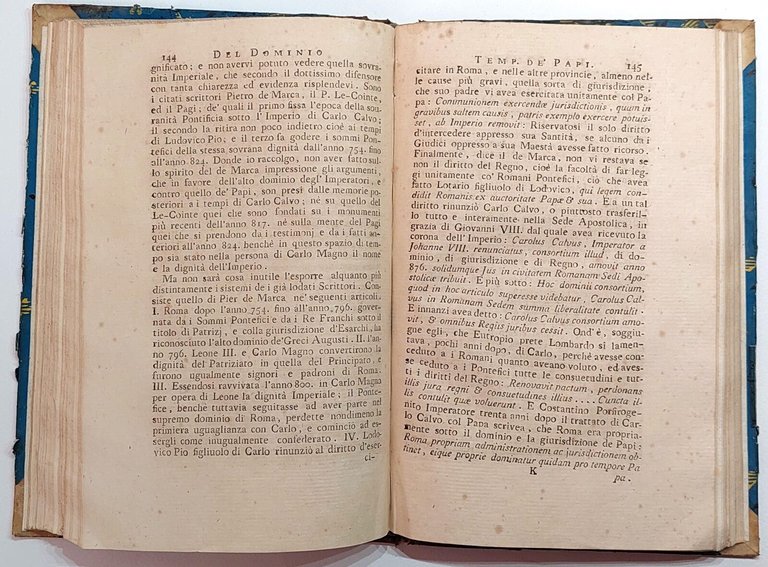 144 DEL DOMINIO
gnificato; e non avervi potuto vedere quella sovra-
nità Imperiale, che secondo il dottissimo difensore
con tanta chiarezza ed evidenza risplendevi. Sono
i citati scrittori Pietro de Marca, il P. Le-Cointe,
ed il Pagi; de' quali il primo fissa l'epoca della sov-
ranità Pontificia sotto l'Imperio di Carlo Calvo;
il secondo la ritira non poco indietro cioè ai tempi
di Ludovico Pio; e il terzo fa godere i sommi Pon-
tefici della stessa sovrana dignità dall'anno 754. fino
all'anno 824. Donde io raccolgo, non aver fatto sul-
lo spirito del de Marca impressione gli argumenti,
che in favore dell'alto dominio degl'Imperatori, e
contro quello de' Papi, son presi dalle memorie po-
steriori a i tempi di Carlo Calvo; nè su quello del
Le-Cointe quei che sono fondati su i monumenti
più recenti dell'anno 817. nè sulla mente del Pagi
quei che si prendono da i testimonj e da i fatti an-
teriori all'anno 824. benchè in questo spazio di tem-
po sia stato nella persona di Carlo Magno il nome
e la dignità dell'Imperio.
Ma non sarà cosa inutile l'esporre alquanto più
distintamente i sistemi de i già lodati Scrittori. Con-
siste quello di Pier de Marca ne' seguenti articoli.
I. Roma dopo l'anno 754. fino all'anno 796. gover-
nata da i Sommi Pontefici e da i Re Franchi sotto il
titolo di Patrizj, e colla giurisdizione d'Esarchi, ha
riconosciuto l'alto dominio de' Greci Augusti. II. l'an-
no 796. Leone III. e Carlo Magno convertirono la
dignità del Patriziato in quella del Principato, e
furono ugualmente signori e padroni di Roma.
III. Essendosi ravvivata l'anno 800. in Carlo Magno
per opera di Leone la dignità Imperiale; il Ponte-
fice, benchè tuttavia seguitasse ad aver parte nel
supremo dominio di Roma, perdette nondimeno la
primiera uguaglianza con Carlo, e cominciò ad es-
sergli come inugualmente confederato. IV. Lodo-
vico Pio figliuolo di Carlo rinunziò al diritto d'eser-
ci-
TEMP. DE' PAPI. 145
citare in Roma, e nelle altre provincie, almeno nel-
le cause più gravi, quella sorta di giurisdizione,
che suo padre vi avea esercitata unitamente col Pa-
pa: Communionem exercendæ jurisdictionis, quam in
gravibus saltem causis, patris exemplo exercere potuis-
set, ab Imperio removit: Riservatosi il solo diritto
d'intercedere appresso sua Santità, se alcuno da i
Giudici oppresso a sua Maestà avesse fatto ricorso.
Finalmente, dice il de Marca, non vi restava se
non il diritto del Regno, cioè la facoltà di far leg-
gi unitamente co' Romani Pontefici, ciò che avea
fatto Lotario figliuolo di Lodovico, qui legem con-
didit Romanis ex auctoritate Papæ & sua. E a un tal
diritto rinunziò Carlo Calvo, o piuttosto trasferil-
lo tutto e interamente nella Sede Apostolica, in
grazia di Giovanni VIII. dal quale avea ricevuto la
corona dell'Imperio: Carolus Calvus, Imperator a
Johanne VIII. renunciatus, consortium illud, di do-
minio, di giurisdizione e di Regno, amovit anno
876. solidumque Jus in civitatem Romanam Sedi Apo-
stolicæ tribuit. E più sotto: Hoc dominii consortium,
quod in hoc articulo superesse videbatur, Carolus Cal-
vus in Romanam Sedem summa liberalitate contulit.
E innanzi avea detto: Carolus Calvus consortium amo-
vit, & omnibus Regiis juribus cessit. Ond'è, soggiu-
gne egli, che Eutropio prete Lombardo si lamen-
tava, pochi anni dopo, di Carlo, perchè avesse con-
ceduto a i Romani quanto aveano voluto, ed aves-
se ceduto a i Pontefici tutte le consuetudini e tut-
ti i diritti del Regno: Renovavit pactum, perdonans
illis jura regni & consuetudines illius . . . . Cuncta il-
lis contulit quæ voluerunt. E Costantino Porfiroge-
nito Imperatore trenta anni dopo il trattato di Car-
lo Calvo col Papa scrivea, che Roma era propria-
mente sotto il dominio e la giurisdizione de Papi:
Roma propriam administrationem ac jurisdictionem ob-
tinet, eique proprie dominatur quidam pro tempore Pa-
K pa.